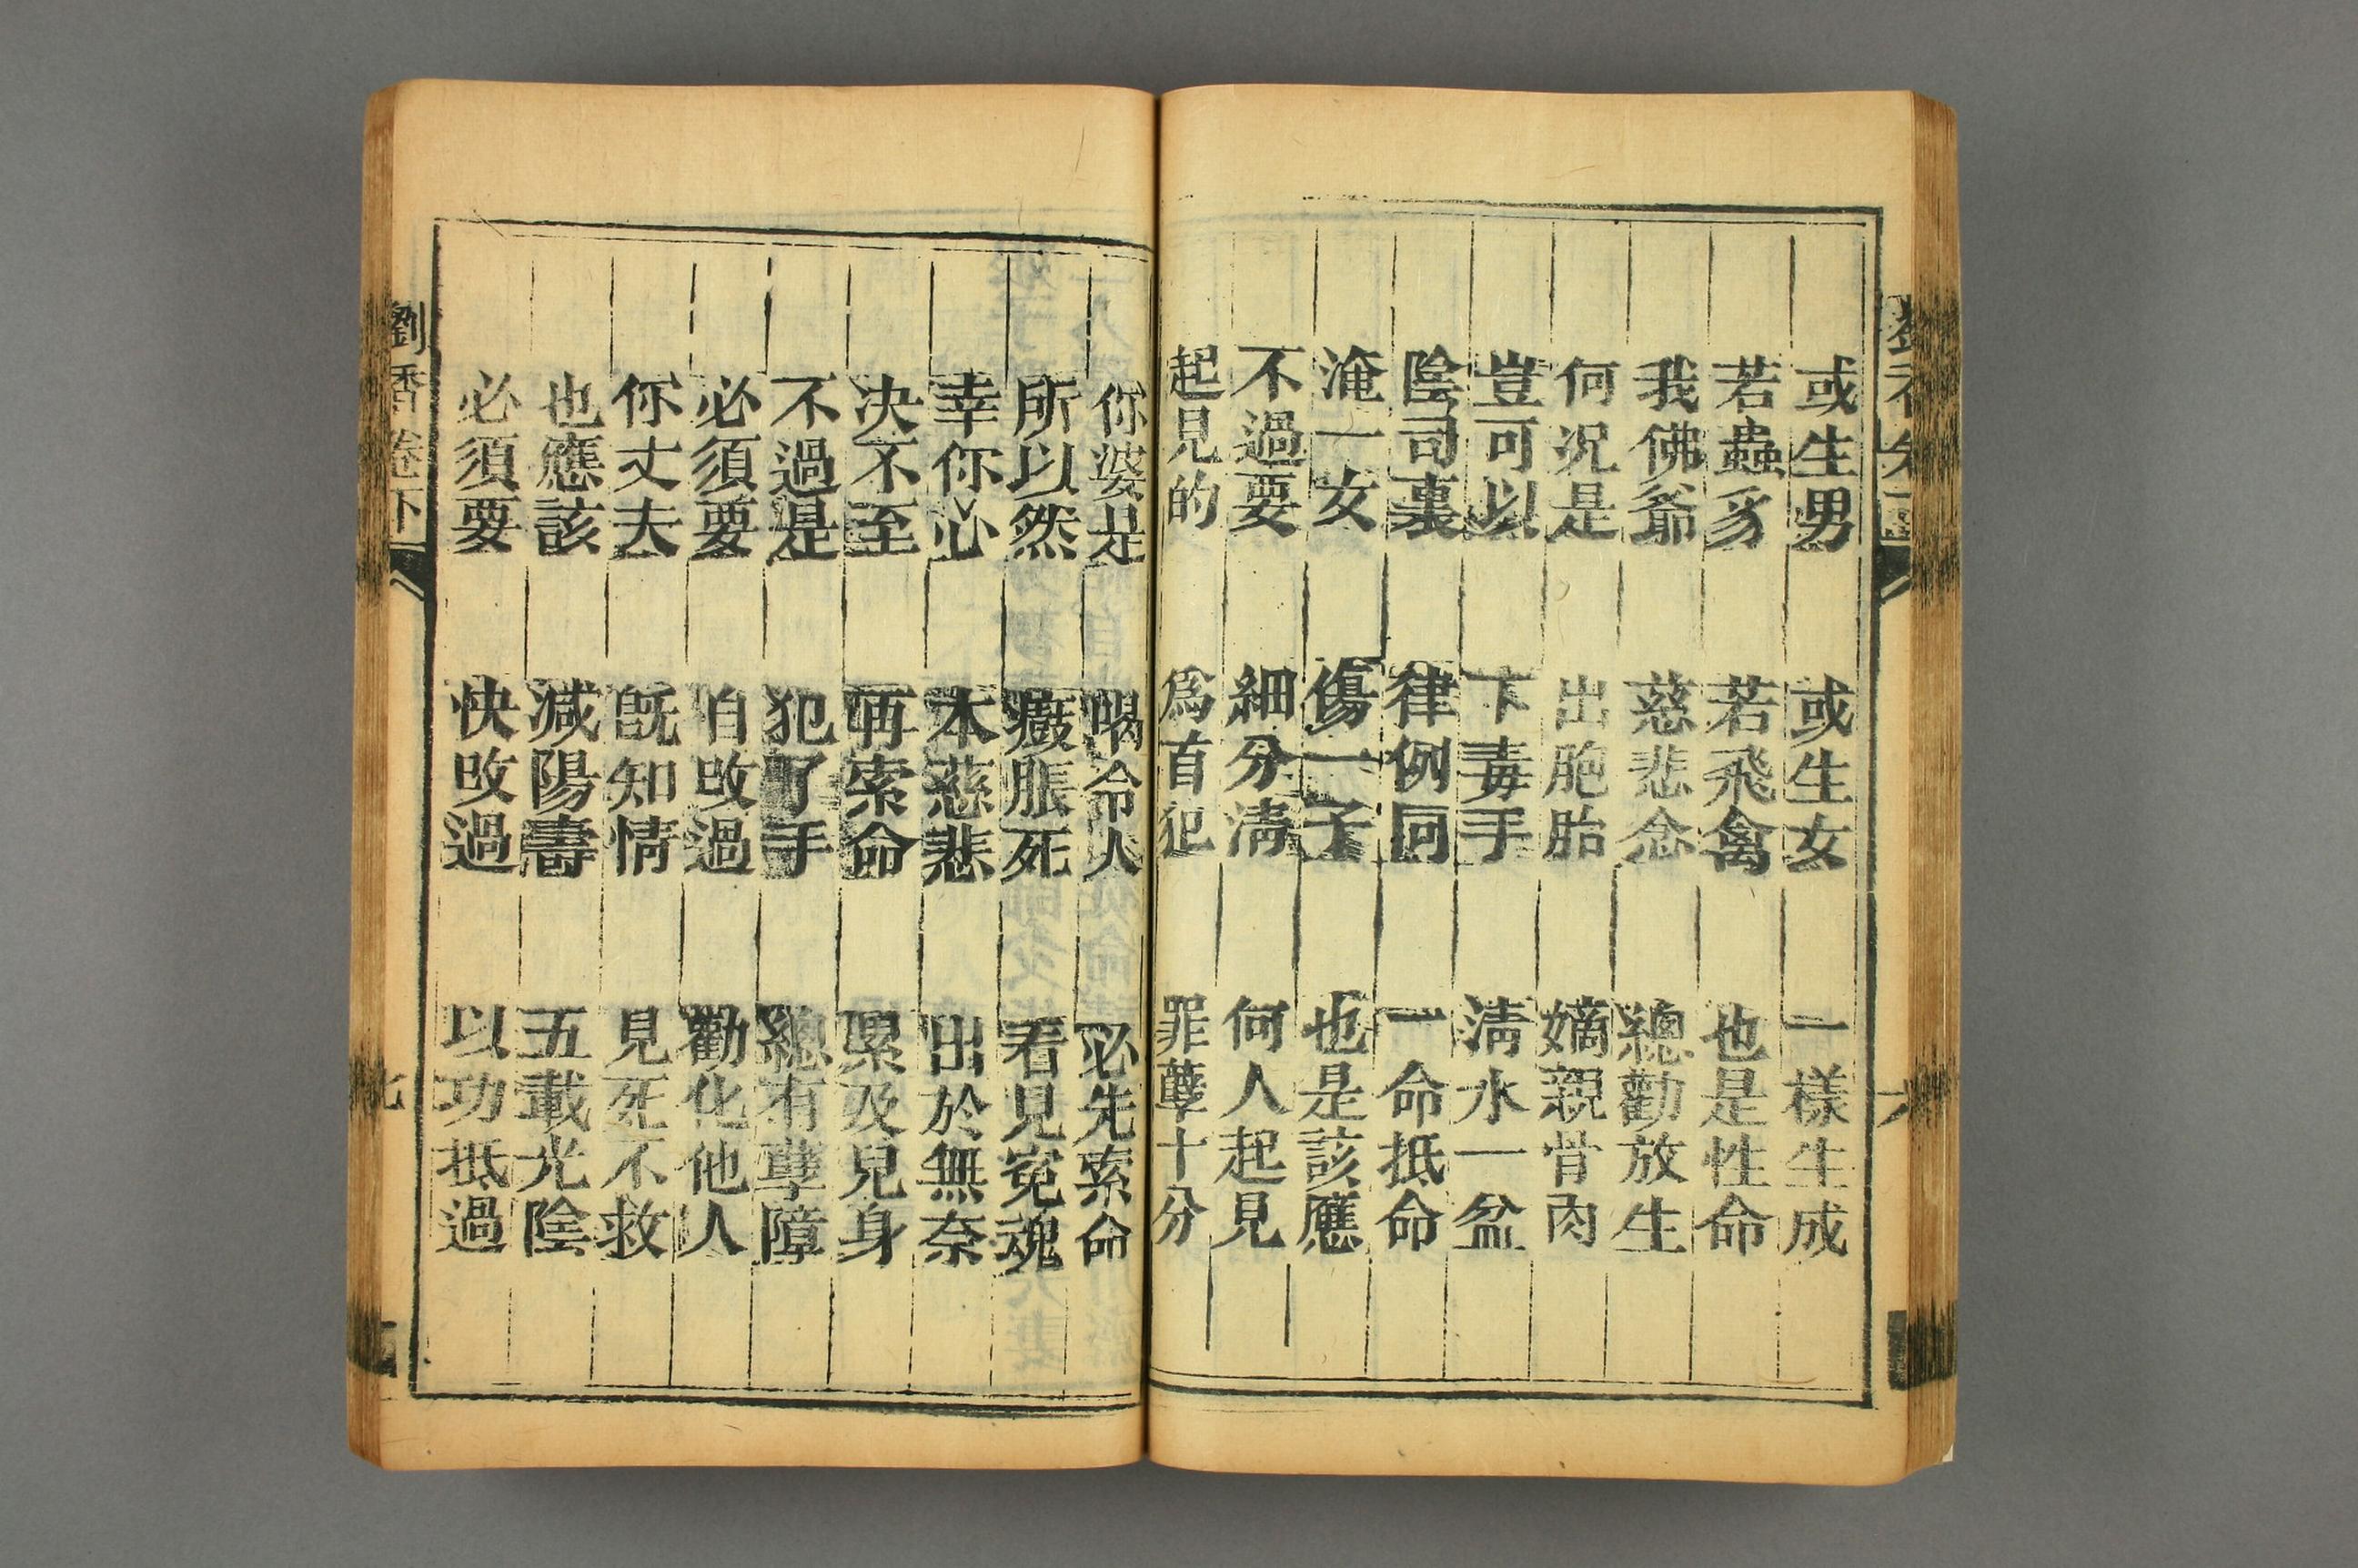 或生男 或生女 一樣生成
若蟲豸 若飛禽 也是性命
我佛爺 慈悲念 總勸放生
何況是 出胞胎 嫡親骨肉
豈可以 下毒手 淸水一盆
陰司裏 律例同 一命抵命
淹一女 傷一子 也是該應
不過要 細分淸 何人起見
起見的 爲首犯 罪孽十分
六
你婆是 喝令人 必先索命
所以然 癥脹死 看見寃魂
幸你心 本慈悲 出於無奈
决不至 再索命 累及兒身
不過是 犯了手 總有孽障
必須要 自改過 勸化他人
你丈夫 旣知情 見死不救
也應該 減陽壽 五載光陰
必須要 快改過 以功抵過
劉香 卷下
七